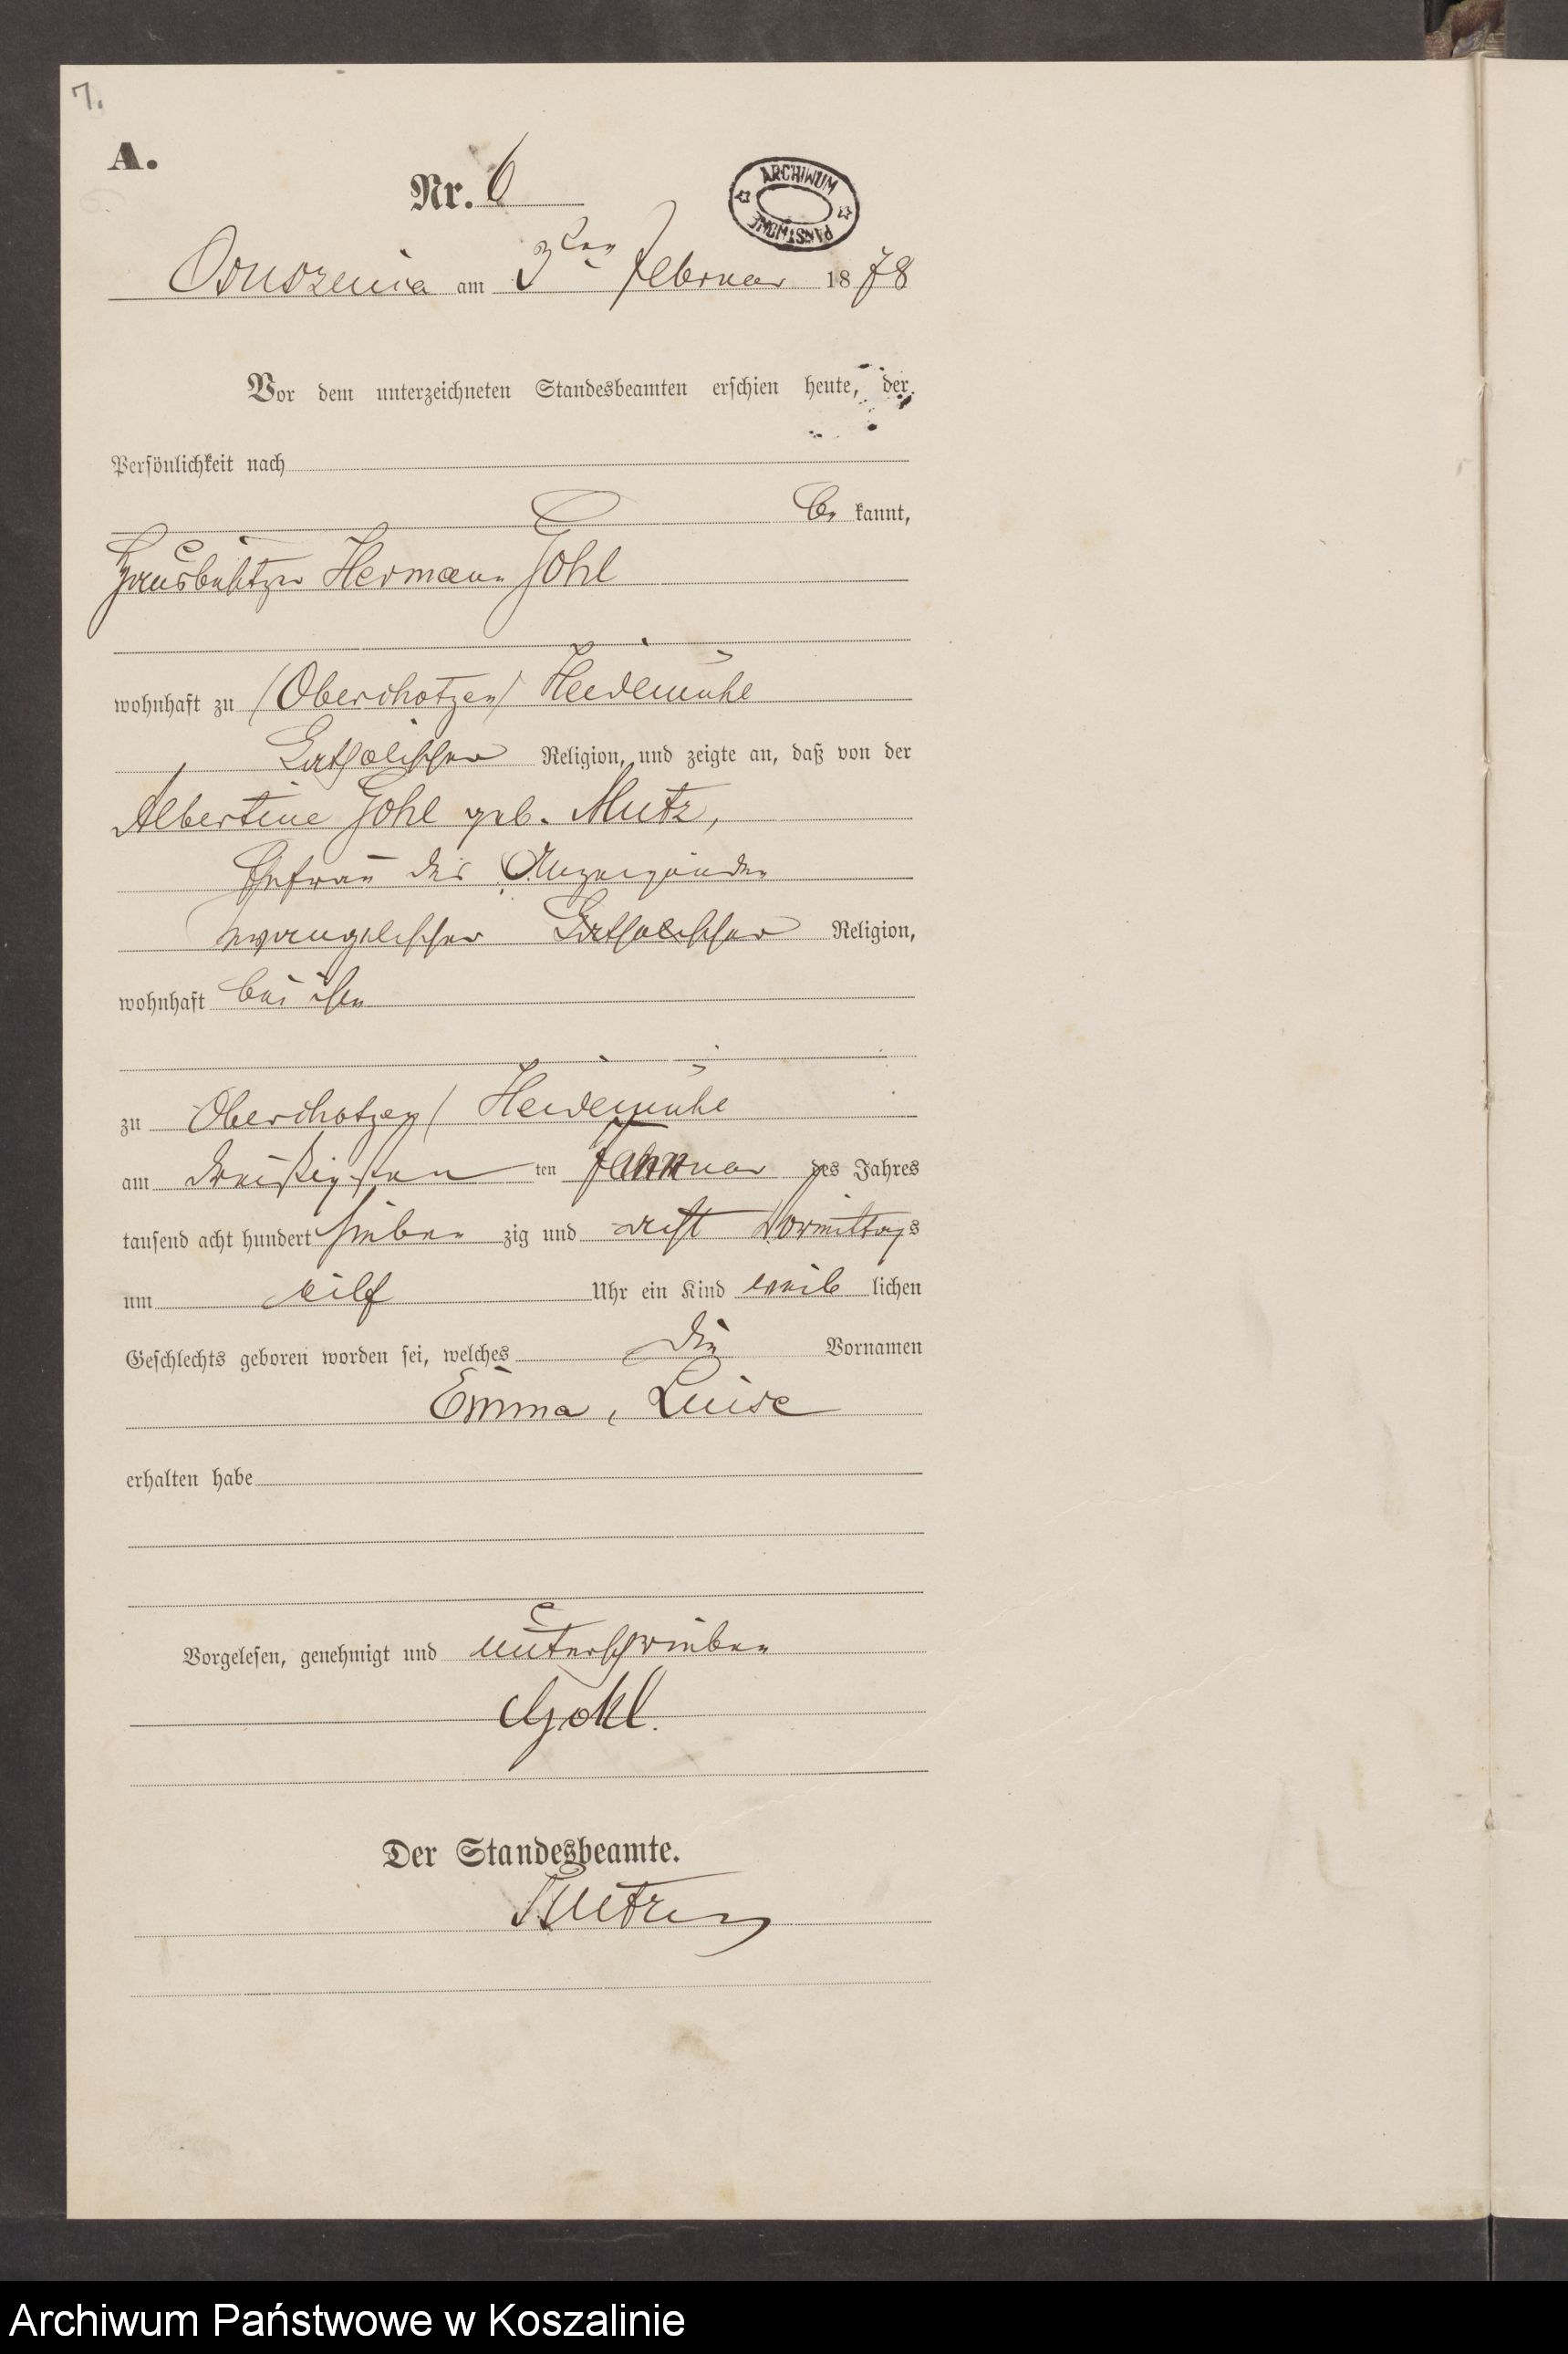 7.
A.
Nr. 6
ARCHIWUM PAŃSTWOWE
Ossuszenica am 3ten Februar 1878
Vor dem unterzeichneten Standesbeamten erschien heute, der
Persönlichkeit nach
be kannt,
Hausbesitzer Hermann Gohl
wohnhaft zu (Oberchotzen) Heidemühl
katholischer Religion, und zeigte an, daß von der
Albertine Gohl geb. Mutz,
Ehefrau des Anzeigenden
evangelischer katholischer Religion,
wohnhaft bei ihm
zu Oberchotzen / Heidemühl
am dreißigsten ten Januar des Jahres
tausend acht hundert sieben zig und acht Vormittags
um eilf Uhr ein Kind weib lichen
Geschlechts geboren worden sei, welches die Vornamen
Emma, Luise
erhalten habe
Vorgelesen, genehmigt und unterschrieben
Gohl.
Der Standesbeamte.
Archiwum Państwowe w Koszalinie